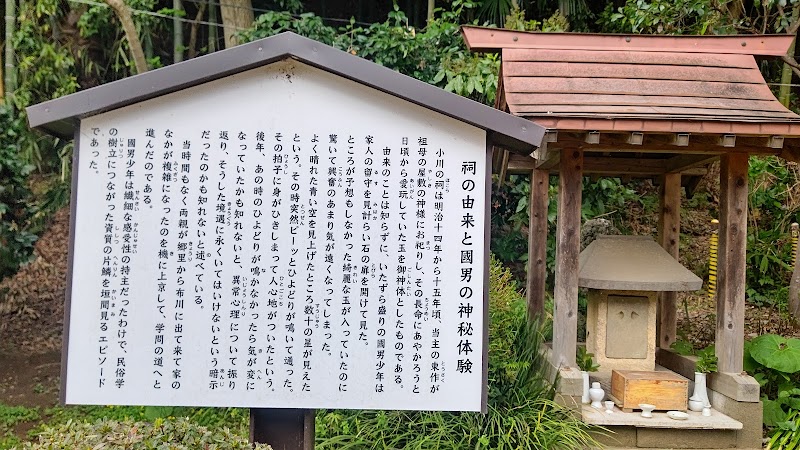 祠の由来と國男の神秘体験
小川の祠は明治十四年から十五年頃、当主の東作が
祖母の屋敷の神様にお祀りし、その長命にあやかろうと
日頃から愛玩していた玉を御神体としたものである。
由来のことは知らずに、いたずら盛りの國男少年は
家人の留守を見計らい石の扉を開けて見た。
ところが予想もしなかった綺麗な玉が入っていたのに
驚いて興奮のあまり気が遠くなってしまった。
よく晴れた青い空を見上げたところ数十の星が見えた
という。その時突然ピーッとひよどりが鳴いて通った。
その拍子に身がひきしまって人心地がついたという。
後年、あの時のひよどりが鳴かなかったら気が変に
なっていたかも知れないと、異常心理について振り
返り、そうした境遇に永くいてはいけないという暗示
だったのかも知れないと述べている。
当時間もなく両親が郷里から布川に出て来て家の
なかが複雑になったのを機に上京して、学問の道へと
進んだのである。
國男少年は繊細な感受性の持主だったわけで、民俗学
の樹立につながった資質の片鱗を垣間見るエピソード
であった。